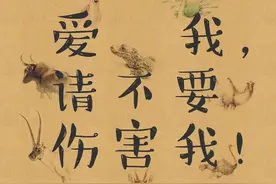 爱我，
请不要
伤害我！